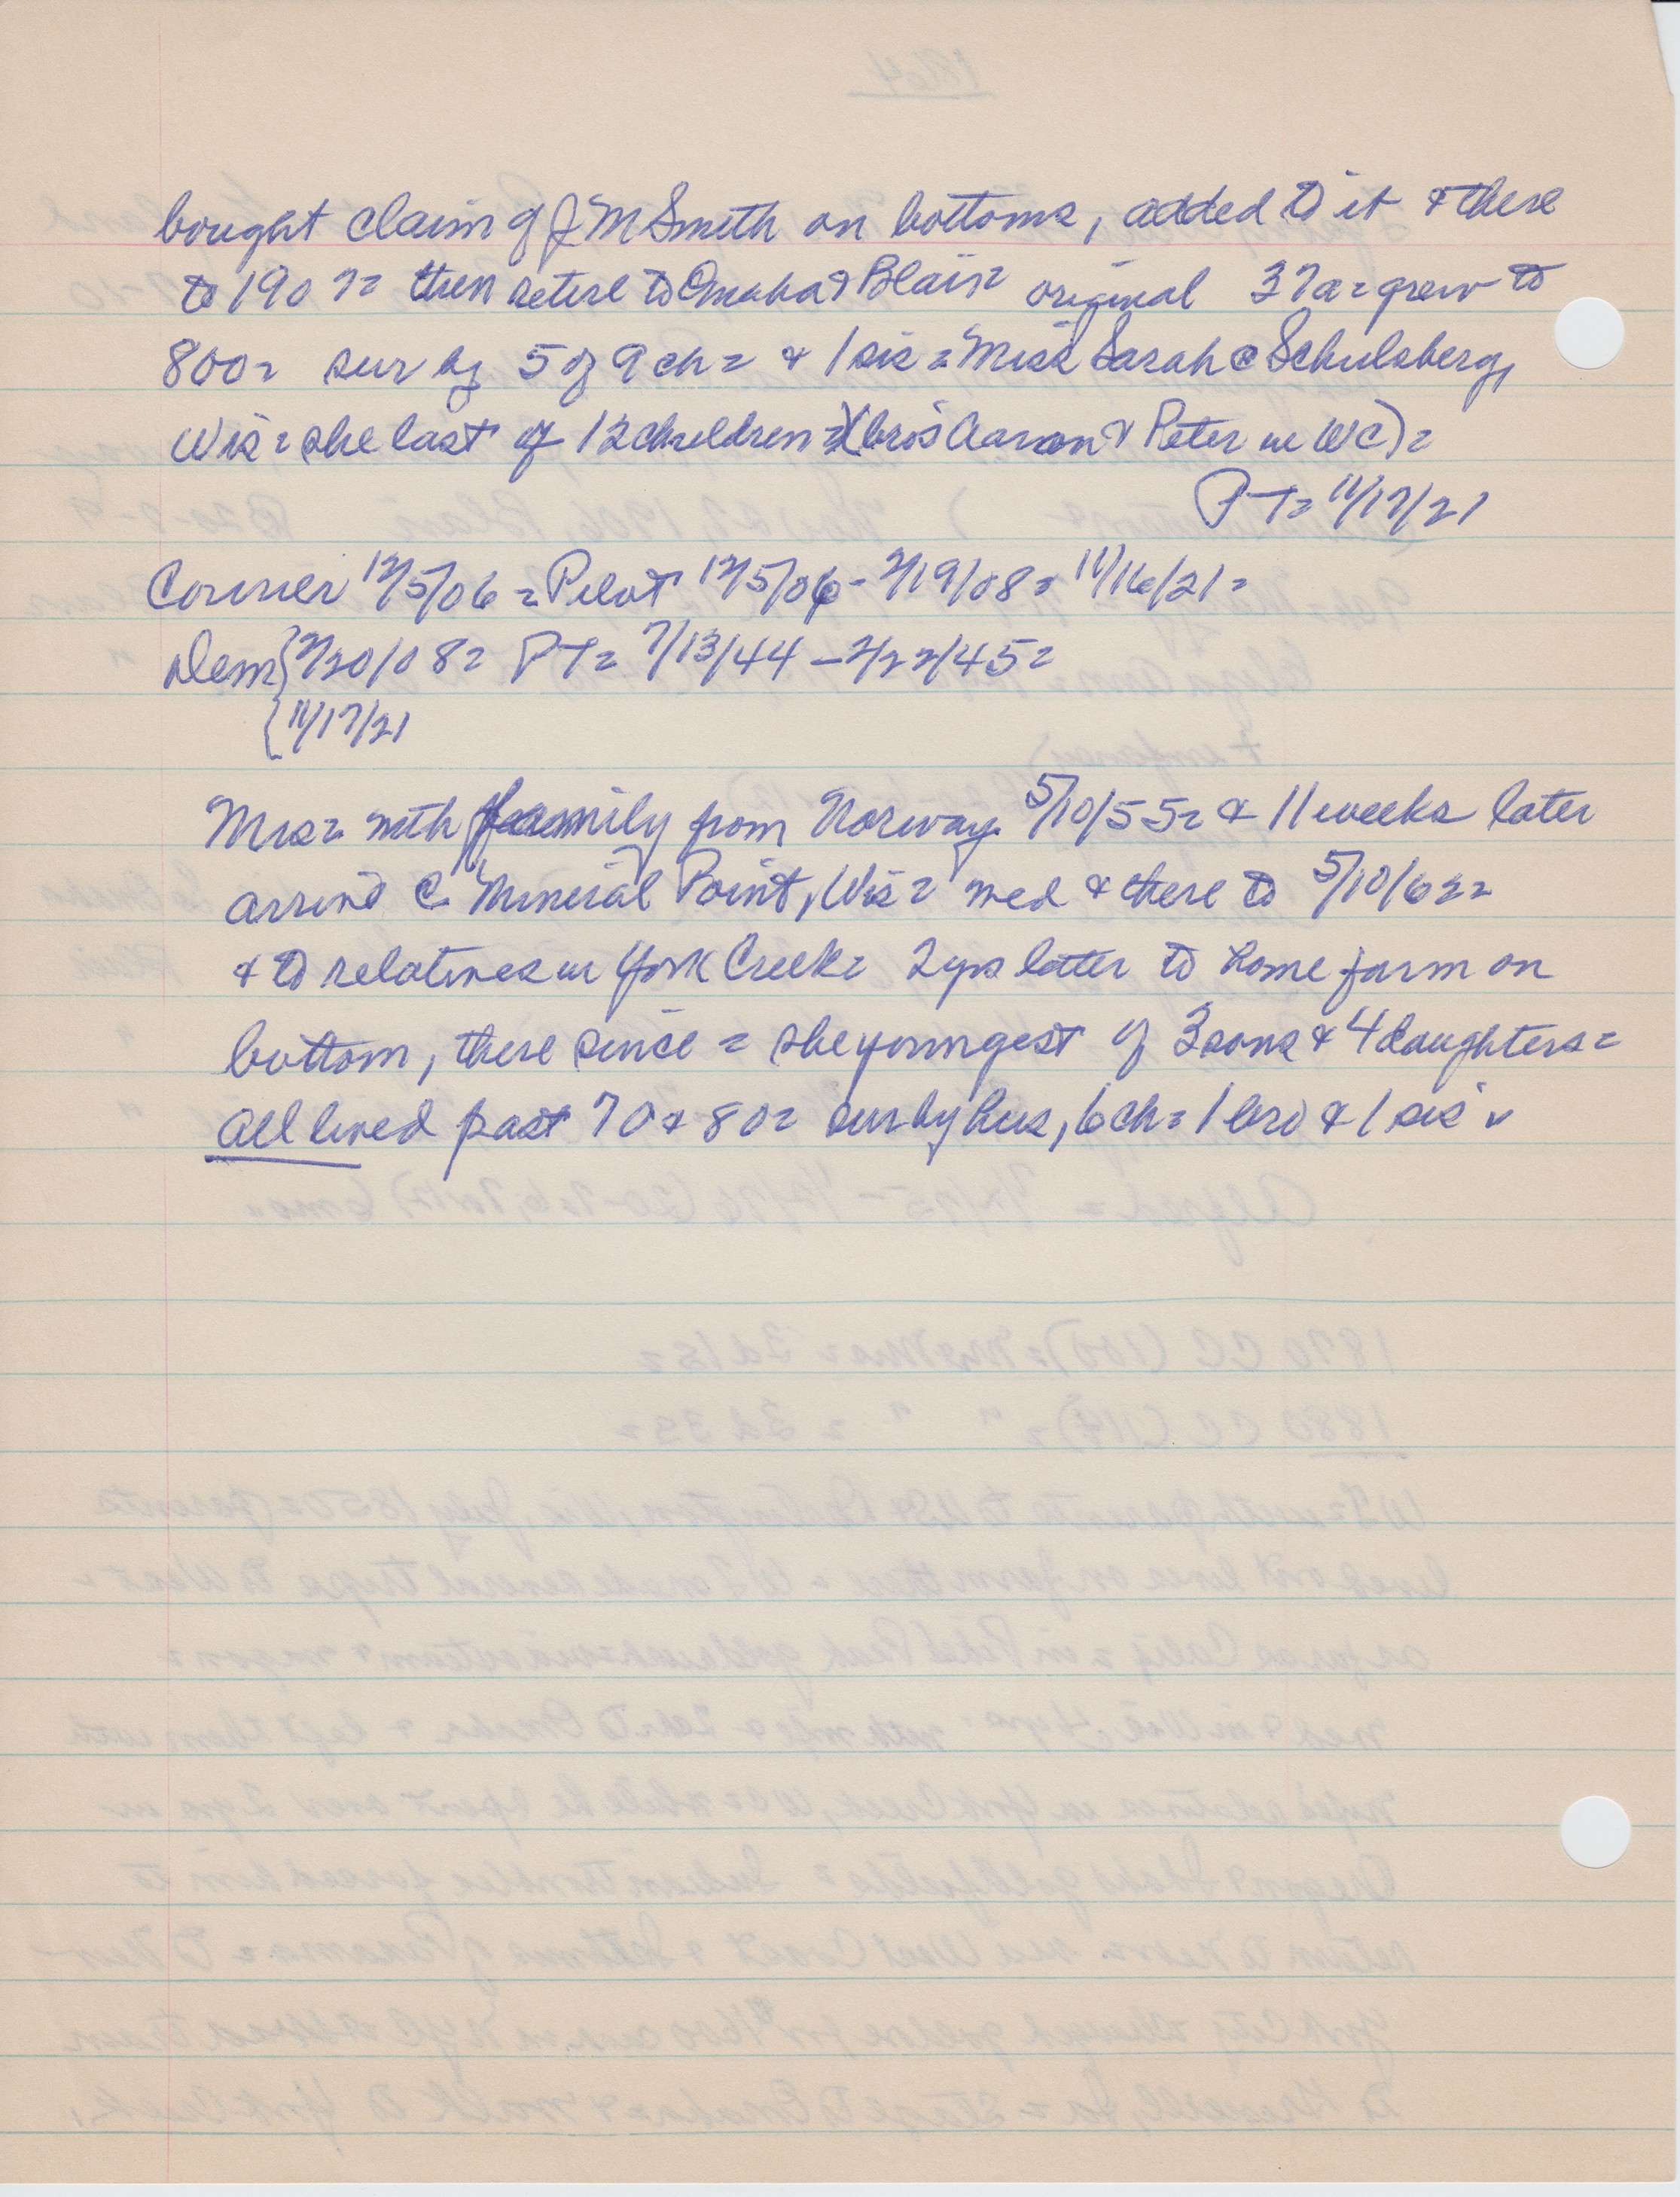 bought claim of J M Smith on bottoms, added to it & there
to 1907= then retire to Omaha & Blair= original 37a= grew to
800= sur by 5 of 9 ch= & 1 sis= Miss Sarah @ Schulsberg,
Wis= she last of 12 children= (bros Aaron & Peter in WC)=
PT= 11/17/21
Courier 12/5/06= Pilot 12/5/06- 2/19/08= 11/16/21=
Dem { 2/20/08= PT= 7/13/44 - 2/22/45=
{ 11/17/21
Mrs= with family from Norway 5/10/55= & 11 weeks later
arrive @ Mineral Point, Wis= med & there to 5/10/62=
& to relatives in York Creek= 2 yrs later to home farm on
bottom, there since= she youngest of 3 sons & 4 daughters=
all lived past 70 & 80= sur by hus, 6 ch= 1 bro & 1 sis